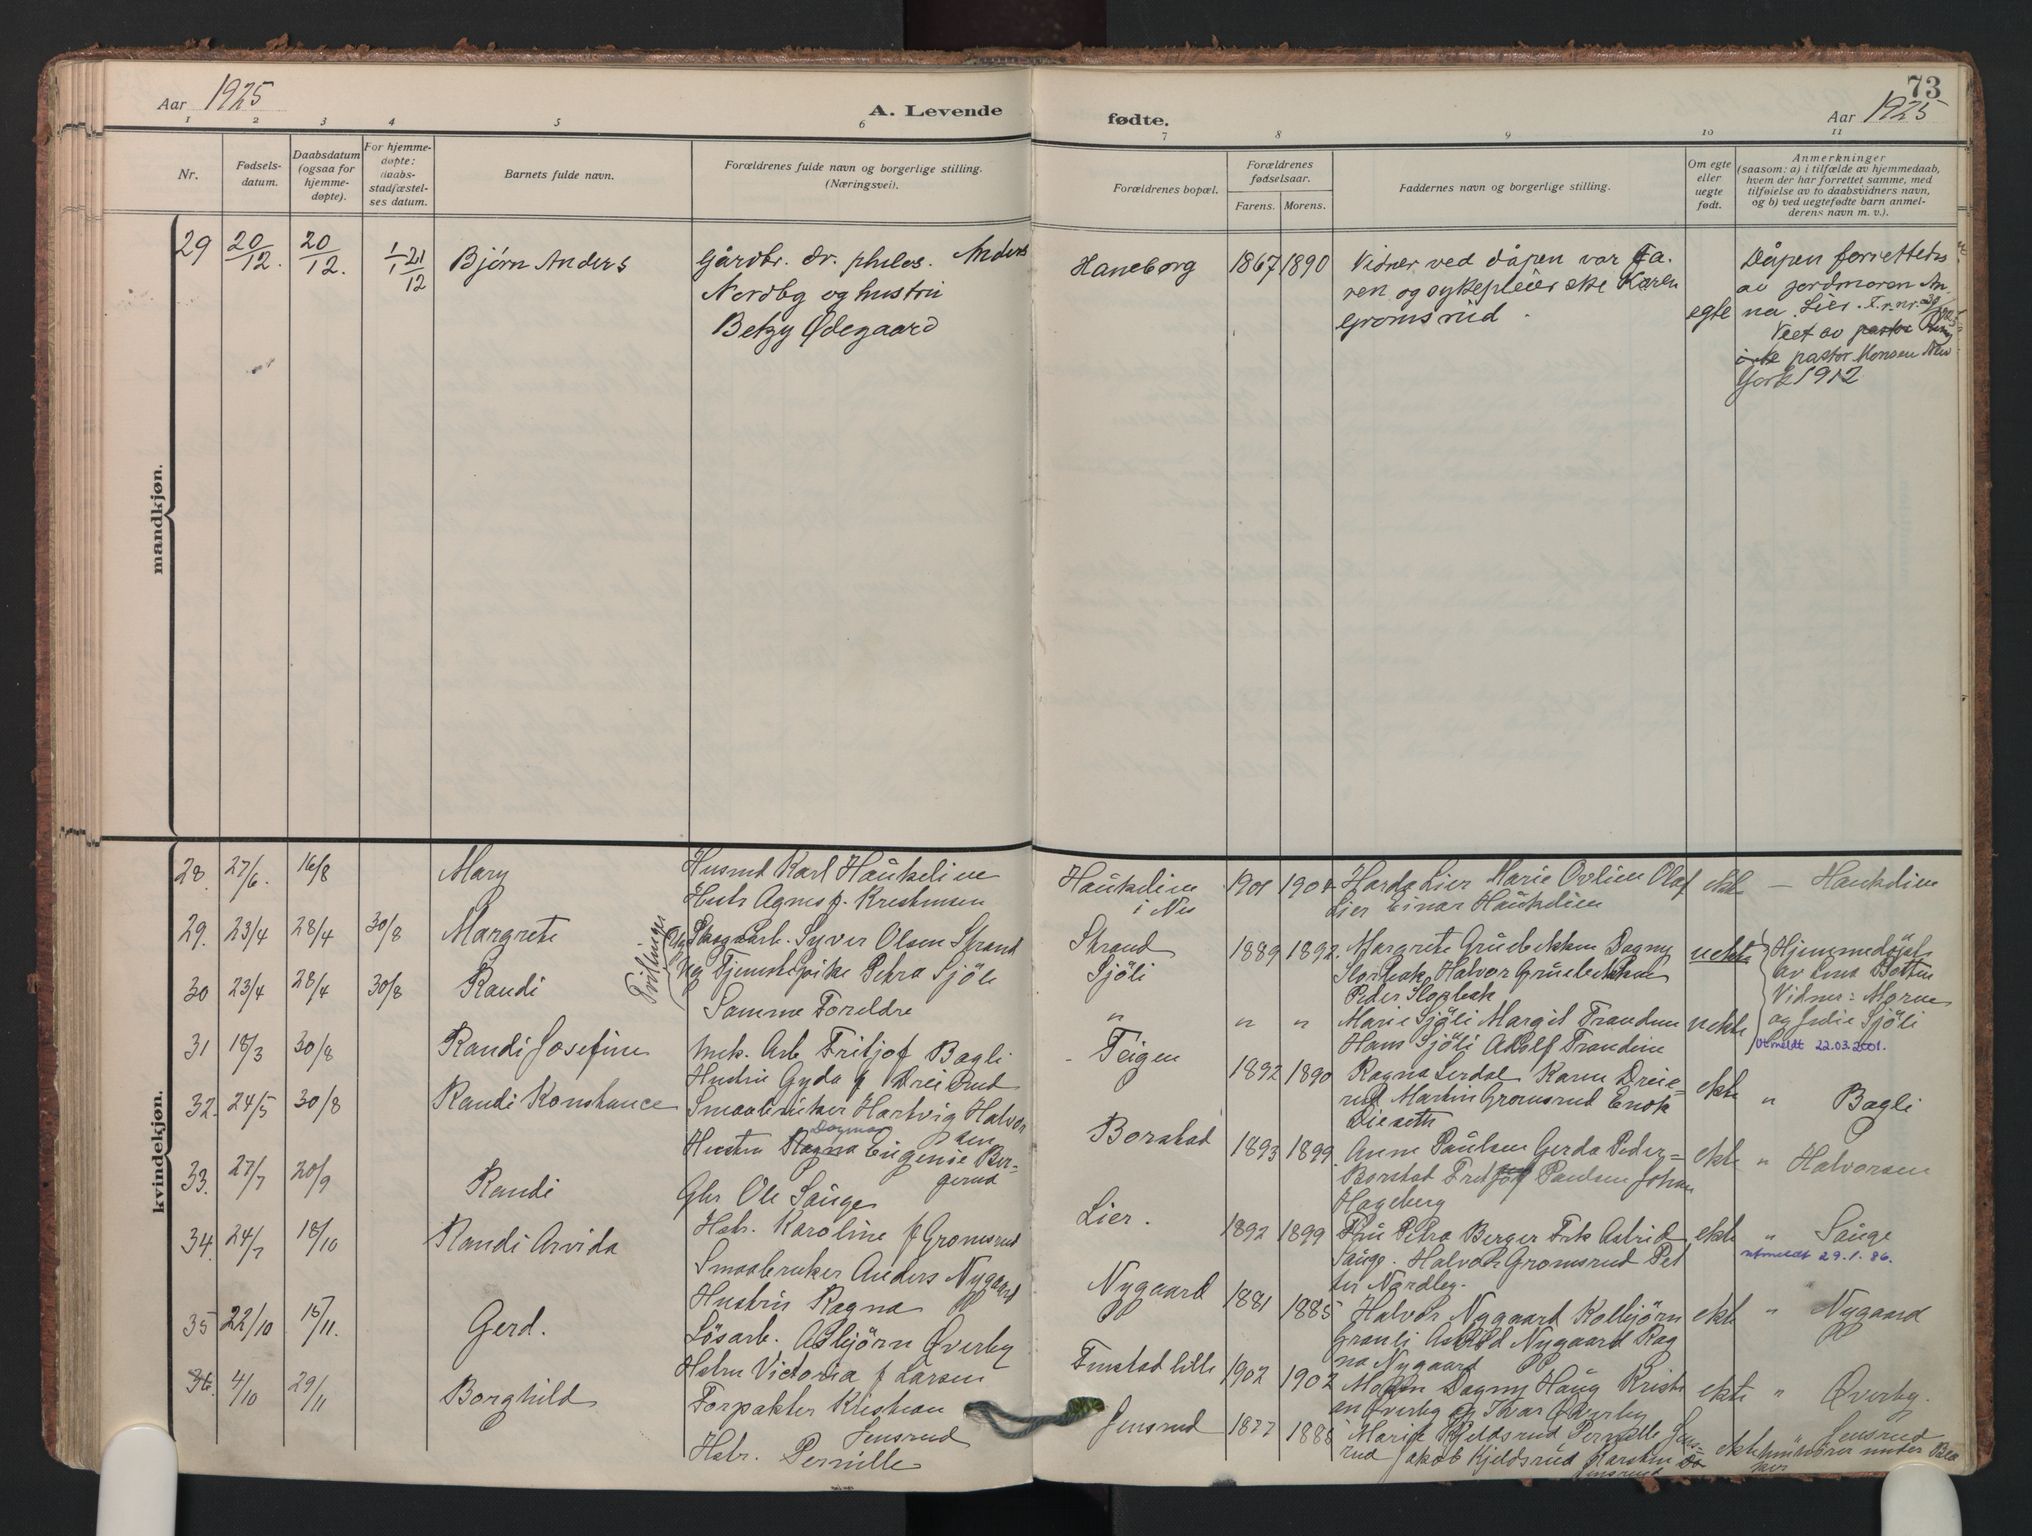 Aar 1925
A. Levende
fødte.
73
Aar 1925
1 2 3 4 5 6 7 8 9 10 11
Nr.
Fødsels-
datum.
Daabsdatum
(ogsaa for
hjemme-
døpte).
For hjemme-
døpte:
daabs-
stadfæstel-
ses datum.
Barnets fulde navn.
Forældrenes fulde navn og borgerlige stilling.
(Næringsvei).
Forældrenes bopæl.
Forældrenes
fødselsaar.
Farens. Morens.
Faddernes navn og borgerlige stilling.
Om egte
eller
uegte
født.
Anmerkninger
(saasom: a) i tilfælde av hjemmedaab,
hvem der har forrettet samme, med
tilføielse av to daabsvidners navn,
og b) ved uegtefødte barn anmel-
derens navn m. v.).
mandkjøn.
29 20/12. 20/12. 1/1 21/12 Bjørn Anders
Gårdbr. dr. philos. Anders
Nordby og hustru
Betzy Ødegaard
Haneborg 1867 1890
Vidner ved dåpen var Fa-
ren og sykepleierske Karen
Gromsrud.
egte
Dåpen forrettedes
av jordmoren An-
na Lier.
Viet av pastor
pastor Monsen New
York 1912
kvindekjøn.
28. 27/6. 16/8 Mary
Husmd Karl Haukeliene
Hustr Agnes f. Kristensen
Haukelien
i Nes
1901 1904
Lier Marie Ovlien Olaf
Lier Einar Haukelien
ekte — Haukelien
29. 23/4 28/4 30/8 Margrete
Tvillinger
Skogsarb. Syver Olsen Strand
og Tjenestepike Petra Sjöli
Strand
Sjöli
1889 1892.
Margrete Gruebekken Dagny
Slorbæk, Halvor Gruebekken
Peder Slorbæk
uekte
Hjemmedøpt
av Lina Botten
Vidner: Moren
og Julie Sjöli
Utmeldt 22.03.2001.
30 23/4 28/4 30/8 Randi
Samme Foreldre
" " "
Marie Sjöli Margit Frandum
Hans Sjöli Adolf
uekte
31 18/3 30/8 Randi Josefine
mek. Arb Fritjof Bagli
Hustru Gyda f Dreierud
Teigen
1892 1890
Ragna Lerdal Karen Dreie-
rud Martin Gromsrud Enok
Dieseth
ekte " Bagli
32. 24/5 30/8 Randi Konstance
Smaabruker Hartvig Halvor
sen
Dagmar
Hustru Ragna Eugenie Ber-
gerud
Borstad
1893 1899.
Anne Paulsen Gerda Peder-
Borstad Fritjof Paulsen Johan
Hageberg
ekte " Halvorsen
33. 27/7 20/9 Randi
Gbr Ole Sauge
Hstr. Karoline f Gromsrud
Lier.
1892 1899
Fru Petra Berger Frk Astrid
Sauge. Halvor Gromsrud Pet
ter Nordby.
ekte " Sauge
utmeldt 29.1.86.
34. 24/7 18/10 Randi Arvida
Smaabruker Anders Nygaard
Hustru Ragna
Nygaard
1881 1885
Halvor Nygaard Kolbjörn
Granli Astrid Nygaard Rag
na Nygaard
ekte " Nygaard
35 22/10 15/11. Gerd.
Løsarb. Asbjörn Øverby
Hstru Victoria f Larsen
Finstad lille
1902 1902
Dagny Haug Kristi
an Øverby og Ivar Øverby
ekte " Øverby.
36. 4/10 29/11 Borghild
Forpakter Kristian
Jensrud
Hstr. Pernille
Jensrud
1877 1885
Marie Kjeldsrud Pernille Jens-
rud Jakob Kjeldsrud Karsten
Jensrud
ekte " Jensrud